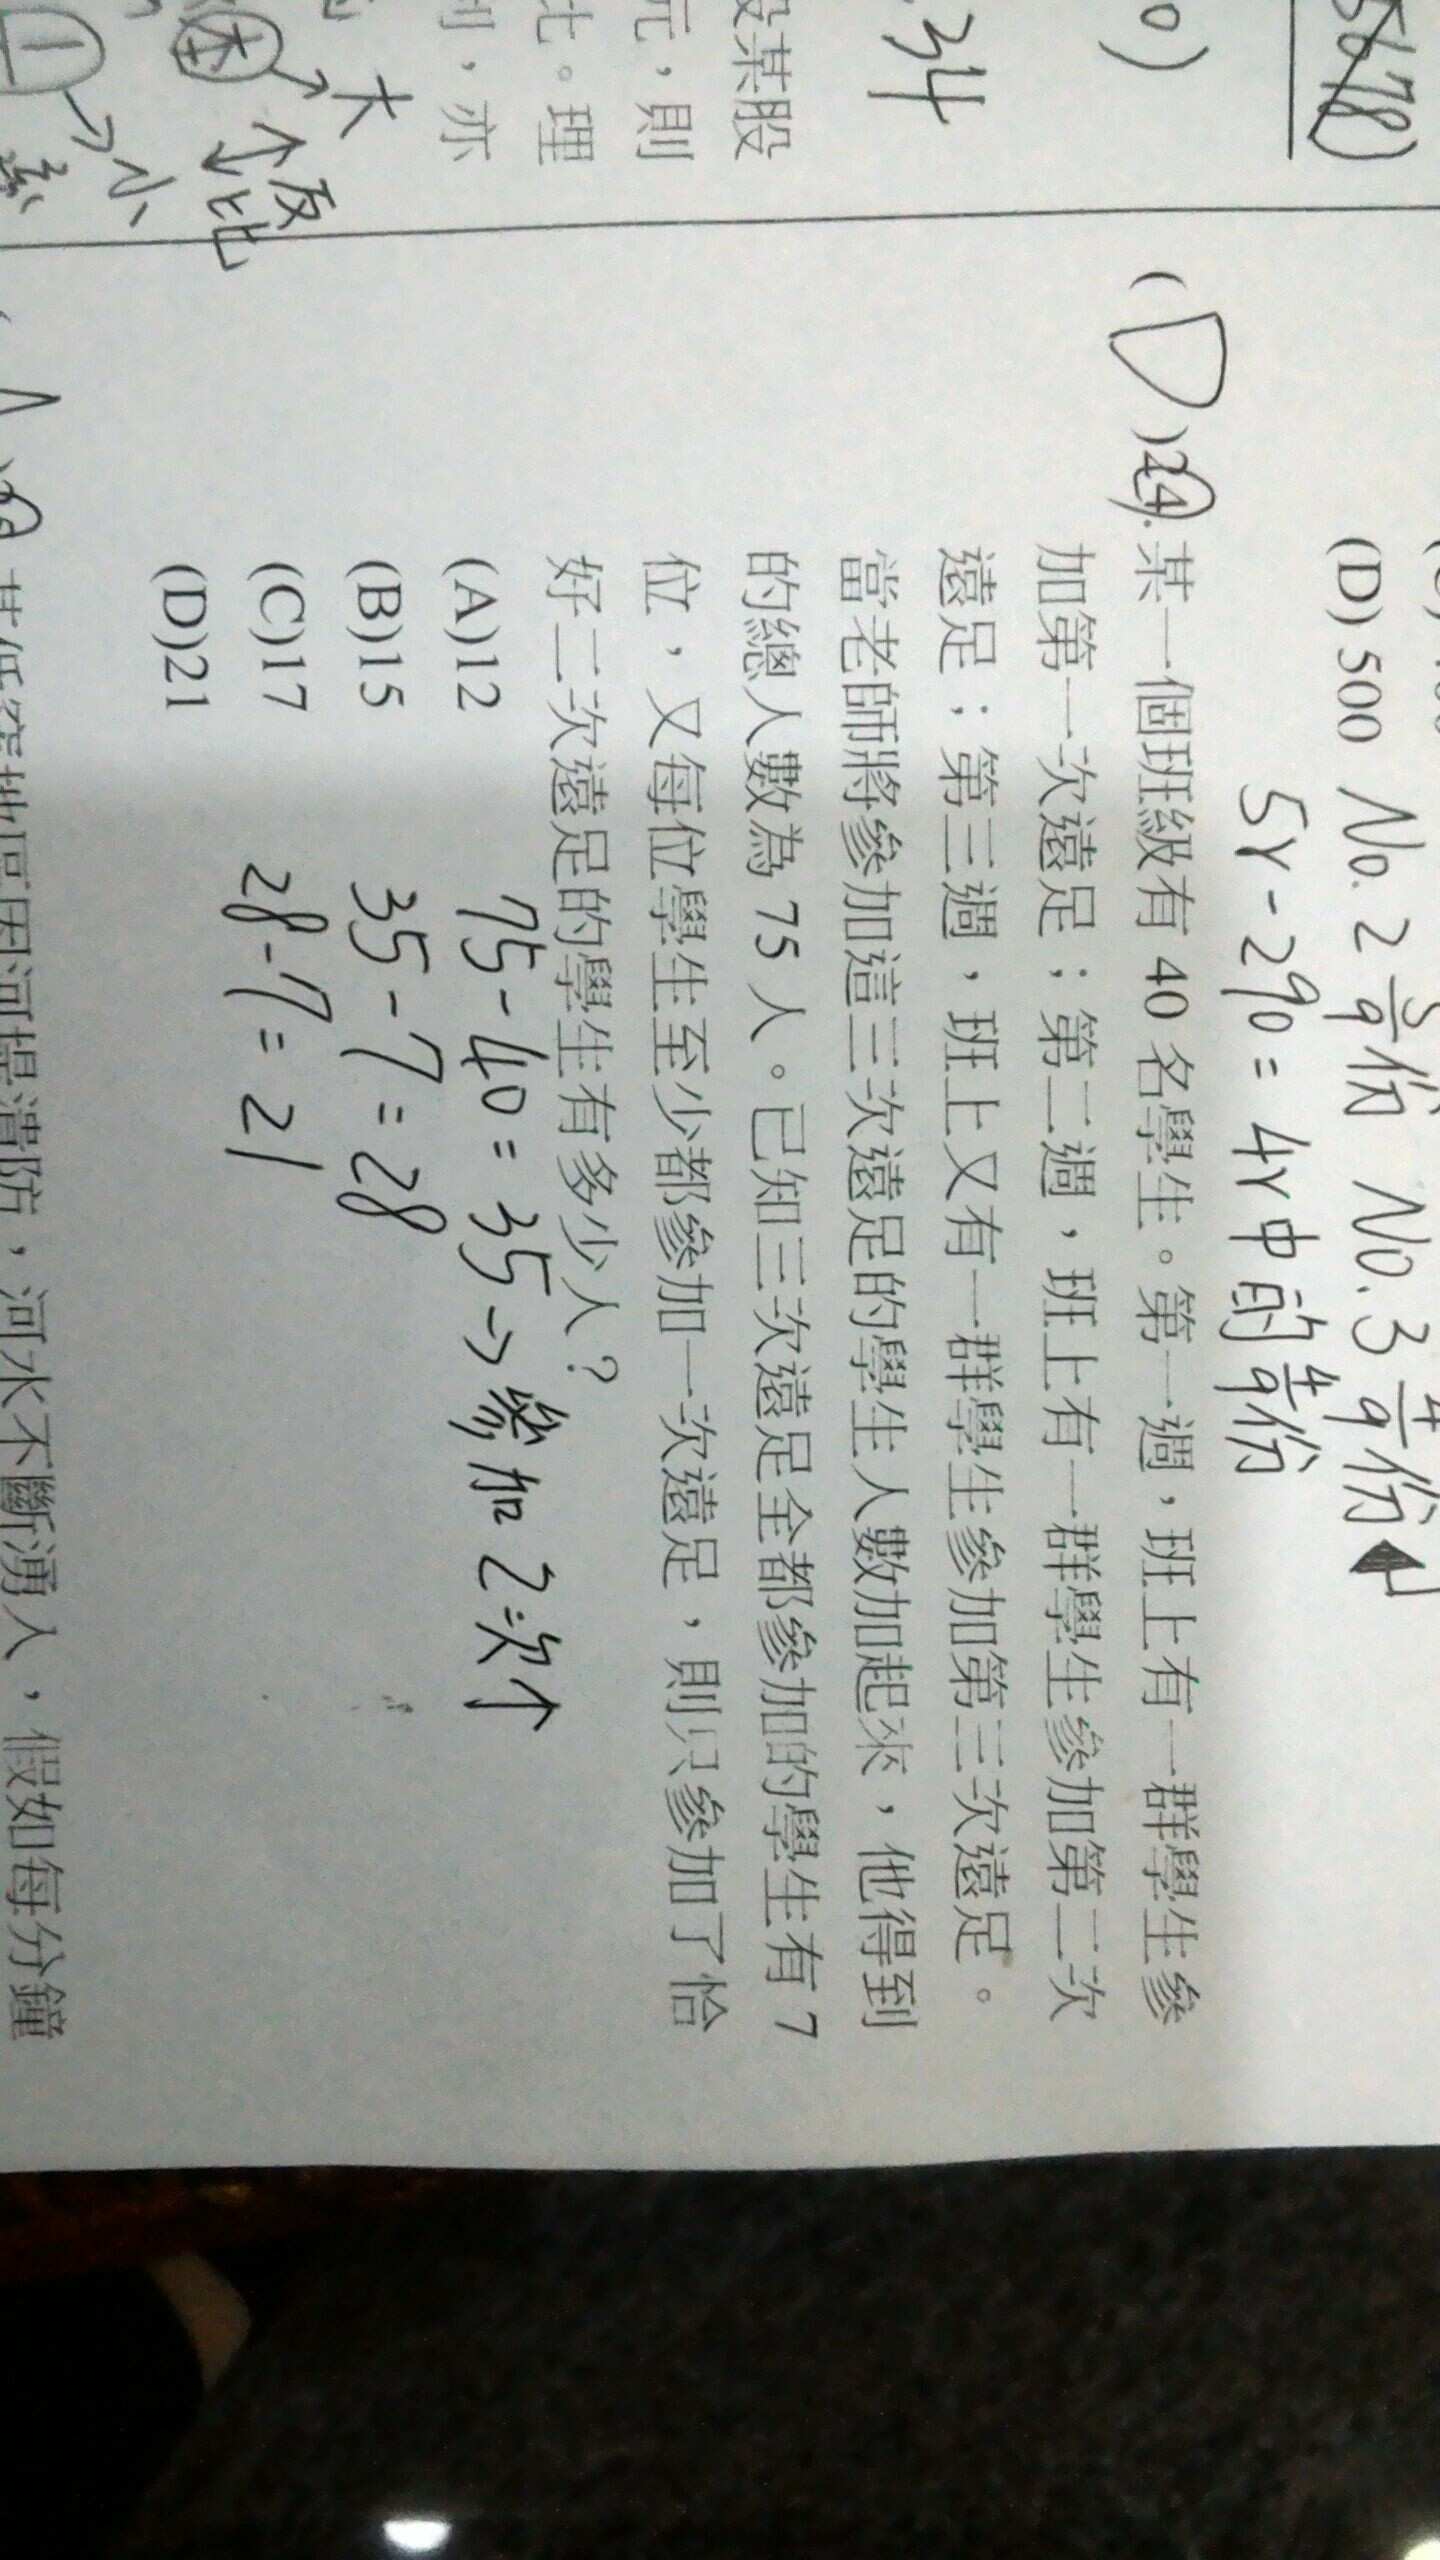 5678)
0)
34
設某股
元，則
比。理
則，亦
本 → 大
反比
→ 小
(D) 500 No. 2 5/9份 No. 3 4/9份
5Y - 290 = 4Y 中的 4/9份
( D )24.某一個班級有 40 名學生。第一週，班上有一群學生參
加第一次遠足；第二週，班上有一群學生參加第二次
遠足；第三週，班上又有一群學生參加第三次遠足。
當老師將參加這三次遠足的學生人數加起來，他得到
的總人數為 75 人。已知三次遠足全都參加的學生有 7
位，又每位學生至少都參加一次遠足，則只參加了恰
好二次遠足的學生有多少人？
(A)12
75 - 40 = 35 → 參加 2次↑
(B)15
35 - 7 = 28
(C)17
28 - 7 = 21
(D)21
因河堤潰防，河水不斷湧入，假如每分鐘